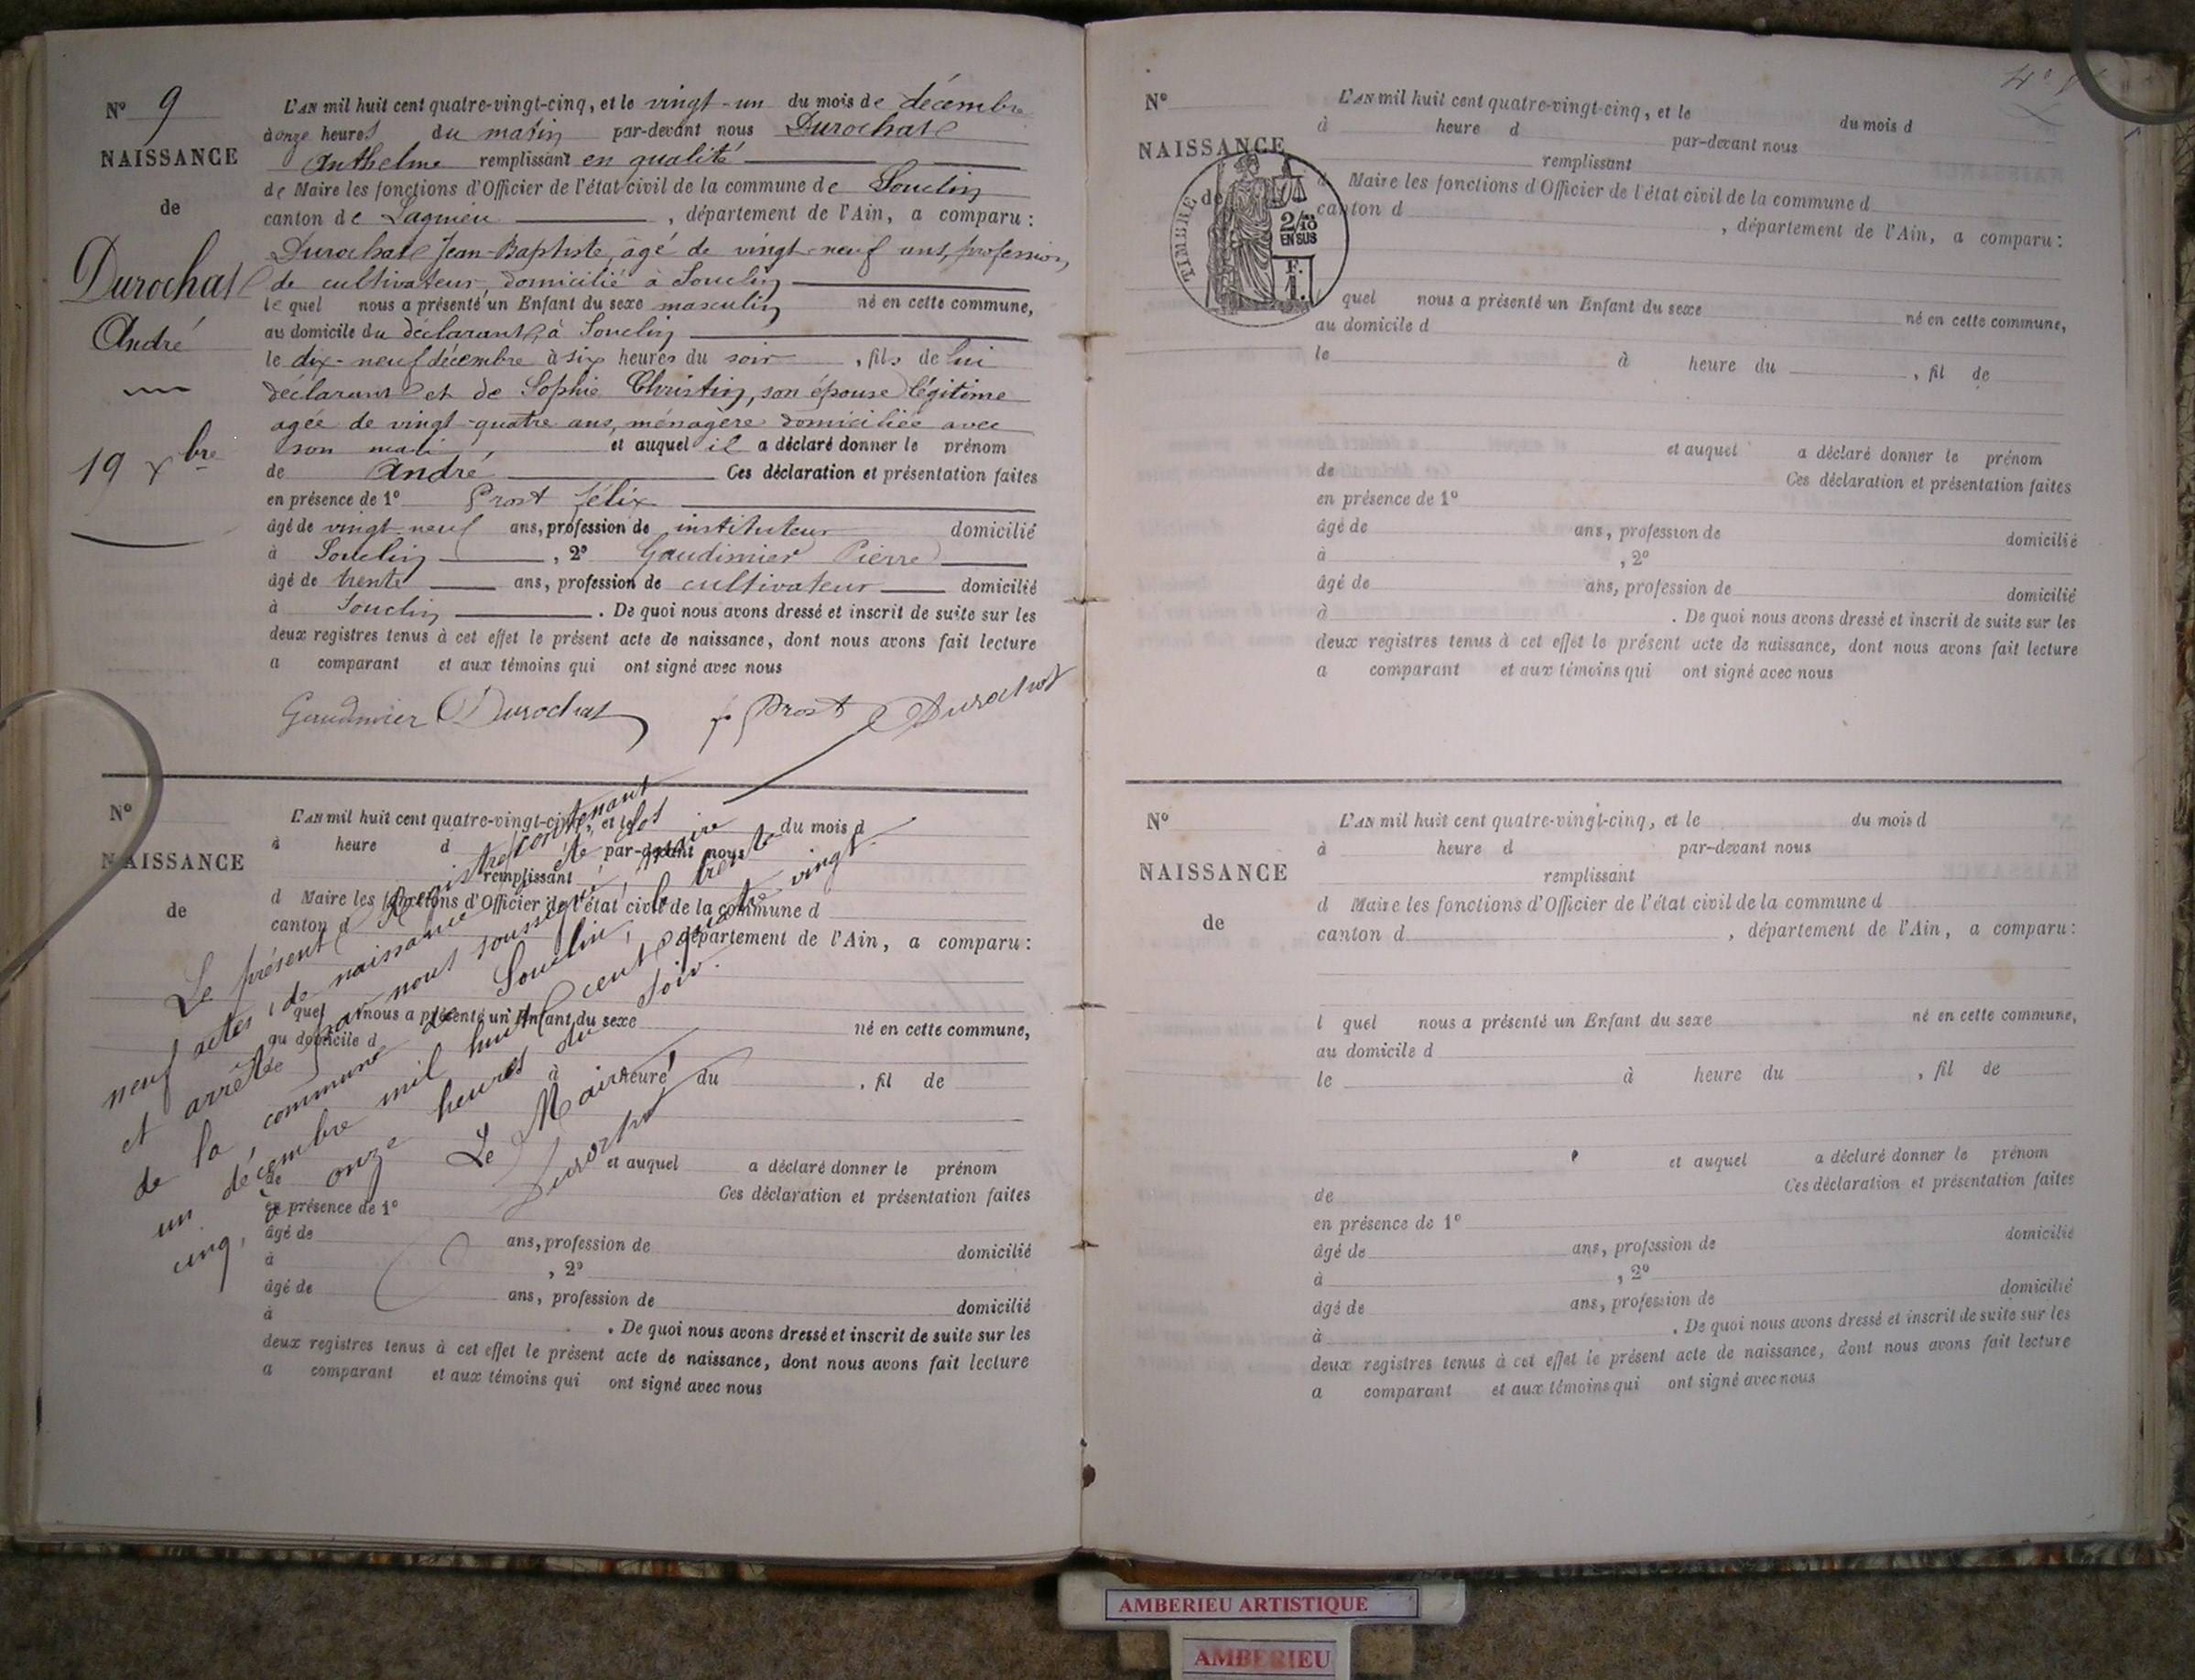 N° 9
NAISSANCE
de
Durochat
André
19 xbre
L'AN mil huit cent quatre-vingt-cinq, et le vingt-un du mois de décembre
à onze heures du matin par-devant nous Durochat
Anthelme remplissant en qualité
de Maire les fonctions d'Officier de l'état civil de la commune de Souclin
canton de Lagnieu , département de l'Ain, a comparu :
Durochat Jean-Baptiste, âgé de vingt-neuf ans, profession
de cultivateur, domicilié à Souclin
le quel nous a présenté un Enfant du sexe masculin né en cette commune,
au domicile du déclarant, à Souclin
le dix-neuf décembre à six heures du soir , fils de lui
déclarant et de Sophie Christin, son épouse légitime
agée de vingt-quatre ans, ménagère domiciliée avec
son mari et auquel il a déclaré donner le prénom
de André Ces déclaration et présentation faites
en présence de 1° Prost félix
âgé de vingt-neuf ans, profession de instituteur domicilié
à Souclin , 2° Gaudimier Pierre
âgé de trente ans, profession de cultivateur domicilié
à Souclin . De quoi nous avons dressé et inscrit de suite sur les
deux registres tenus à cet effet le présent acte de naissance, dont nous avons fait lecture
a comparant et aux témoins qui ont signé avec nous
Gaudimier Durochat f. Prost Durochat
N°
NAISSANCE
de
L'AN mil huit cent quatre-vingt-cinq, et le du mois d
à heure d par-devant nous
remplissant
d Maire les fonctions d'Officier de l'état civil de la commune d
canton d , département de l'Ain, a comparu :
l quel nous a présenté un Enfant du sexe né en cette commune,
au domicile d
à heure du , fil de
et auquel a déclaré donner le prénom
de Ces déclaration et présentation faites
en présence de 1°
âgé de ans, profession de domicilié
à , 2°
âgé de ans, profession de domicilié
à . De quoi nous avons dressé et inscrit de suite sur les
deux registres tenus à cet effet le présent acte de naissance, dont nous avons fait lecture
a comparant et aux témoins qui ont signé avec nous
Le présent Registre contenant
neuf actes de naissance a été clos
et arrêté par nous soussigné, maire
de la commune de Souclin, le trente
un décembre mil huit cent quatre vingt-
cinq, à onze heures du soir.
Le Maire
Durochat
N°
NAISSANCE
de
TIMBRE
2/10
EN SUS
F.
1.
L'AN mil huit cent quatre-vingt-cinq, et le du mois d
à heure d par-devant nous
remplissant
d Maire les fonctions d'Officier de l'état civil de la commune d
canton d , département de l'Ain, a comparu :
l quel nous a présenté un Enfant du sexe né en cette commune,
au domicile d
le à heure du , fil de
et auquel a déclaré donner le prénom
de Ces déclaration et présentation faites
en présence de 1°
âgé de ans, profession de domicilié
à , 2°
âgé de ans, profession de domicilié
à . De quoi nous avons dressé et inscrit de suite sur les
deux registres tenus à cet effet le présent acte de naissance, dont nous avons fait lecture
a comparant et aux témoins qui ont signé avec nous
N°
NAISSANCE
de
L'AN mil huit cent quatre-vingt-cinq, et le du mois d
à heure d par-devant nous
remplissant
d Maire les fonctions d'Officier de l'état civil de la commune d
canton d , département de l'Ain, a comparu :
l quel nous a présenté un Enfant du sexe né en cette commune,
au domicile d
le à heure du , fil de
et auquel a déclaré donner le prénom
de Ces déclaration et présentation faites
en présence de 1°
âgé de ans, profession de domicilié
à , 2°
âgé de ans, profession de domicilié
à . De quoi nous avons dressé et inscrit de suite sur les
deux registres tenus à cet effet le présent acte de naissance, dont nous avons fait lecture
a comparant et aux témoins qui ont signé avec nous
AMBERIEU ARTISTIQUE
AMBERIEU